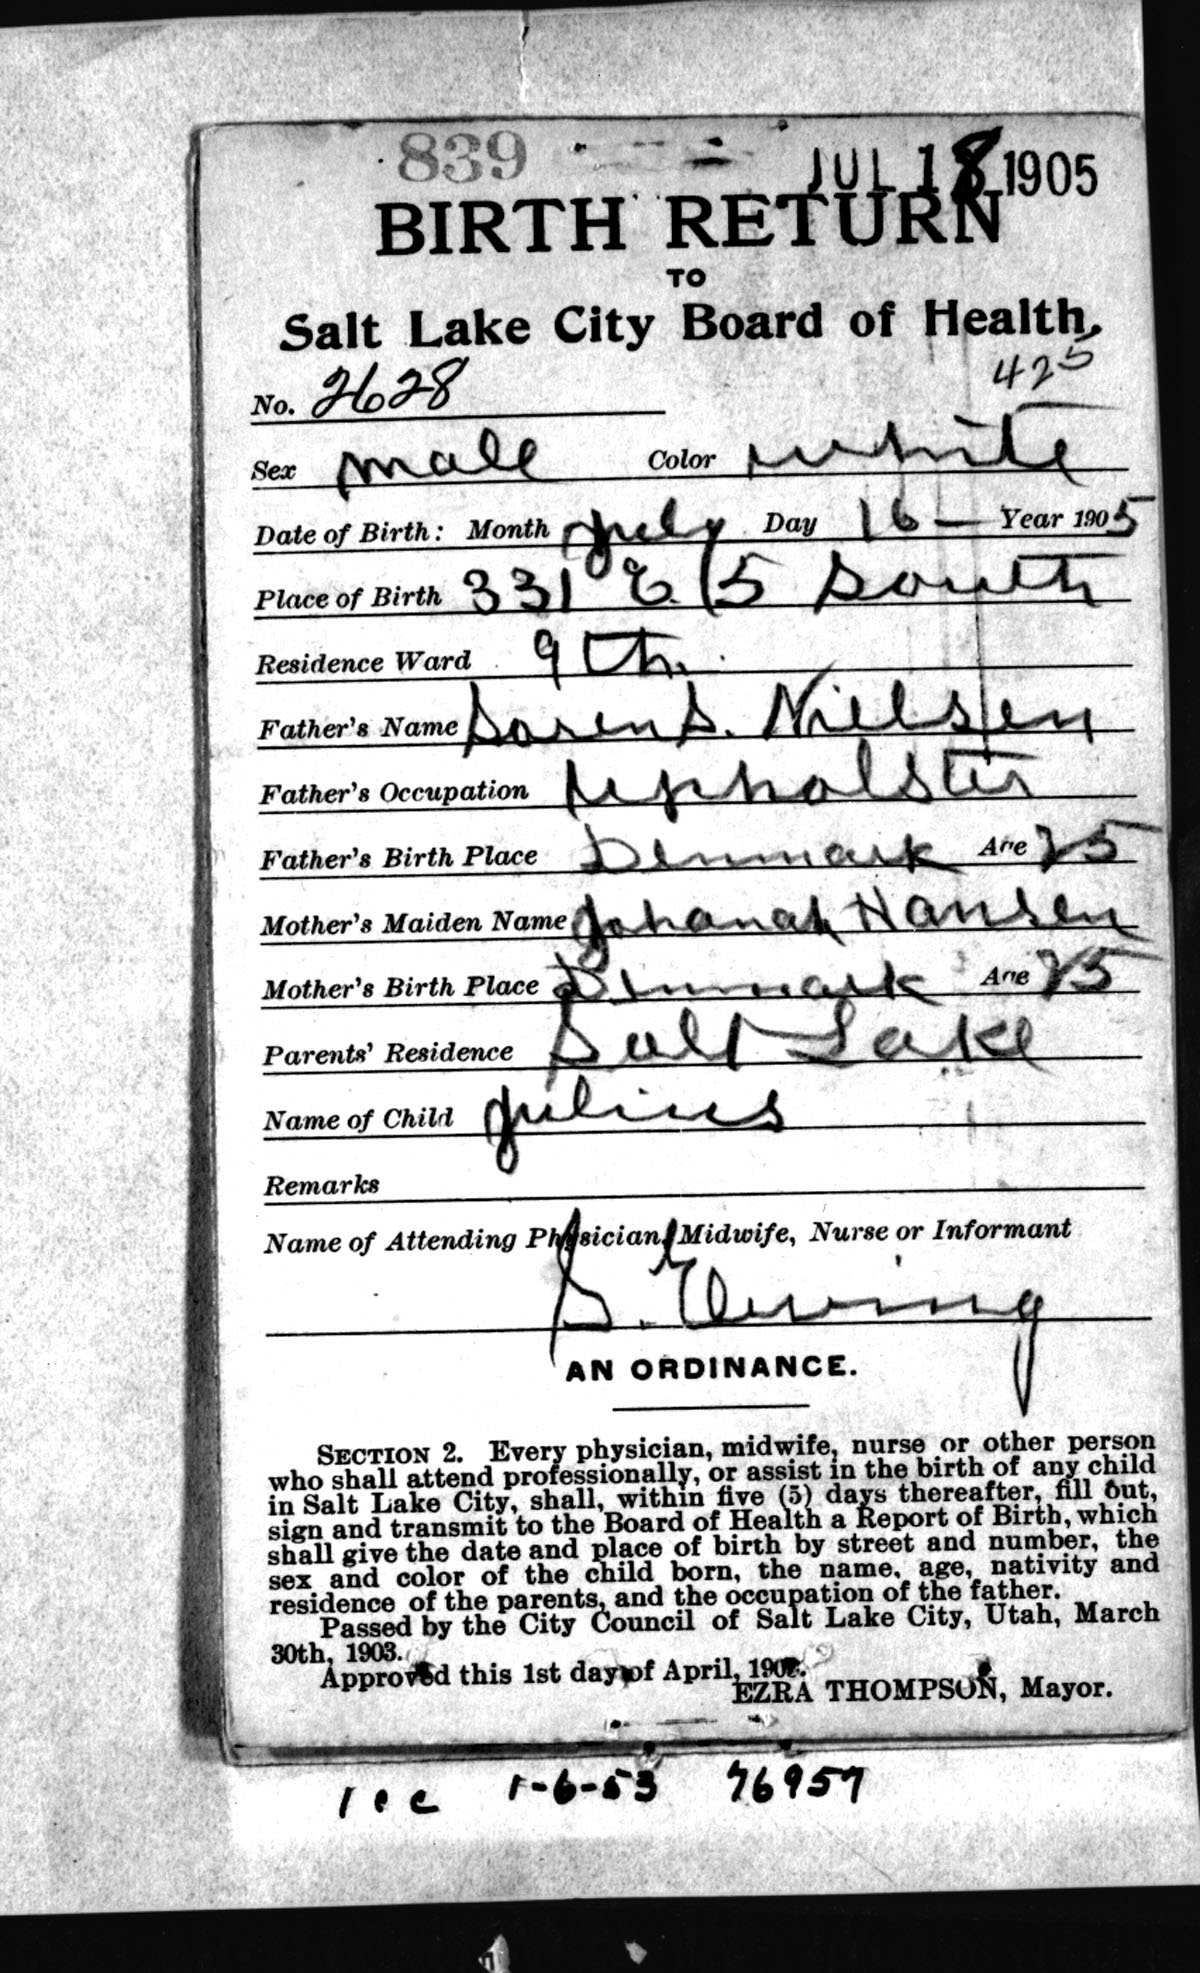 839 JUL 18 1905
BIRTH RETURN
TO
Salt Lake City Board of Health,
425
No. 2628
Sex male Color white
Date of Birth: Month July Day 16 — Year 1905
Place of Birth 331 E. 5 South
Residence Ward 9th.
Father's Name Soren S. Nielsen
Father's Occupation upholster
Father's Birth Place Denmark Age 25
Mother's Maiden Name Johanah Hansen
Mother's Birth Place Denmark Age 25
Parents' Residence Salt Lake
Name of Child Julius
Remarks
Name of Attending Physician, Midwife, Nurse or Informant
S. Ewing
AN ORDINANCE.
SECTION 2. Every physician, midwife, nurse or other person
who shall attend professionally, or assist in the birth of any child
in Salt Lake City, shall, within five (5) days thereafter, fill out,
sign and transmit to the Board of Health a Report of Birth, which
shall give the date and place of birth by street and number, the
sex and color of the child born, the name, age, nativity and
residence of the parents, and the occupation of the father.
Passed by the City Council of Salt Lake City, Utah, March
30th, 1903.
Approved this 1st day of April, 190
EZRA THOMPSON, Mayor.
1-6-53 76957